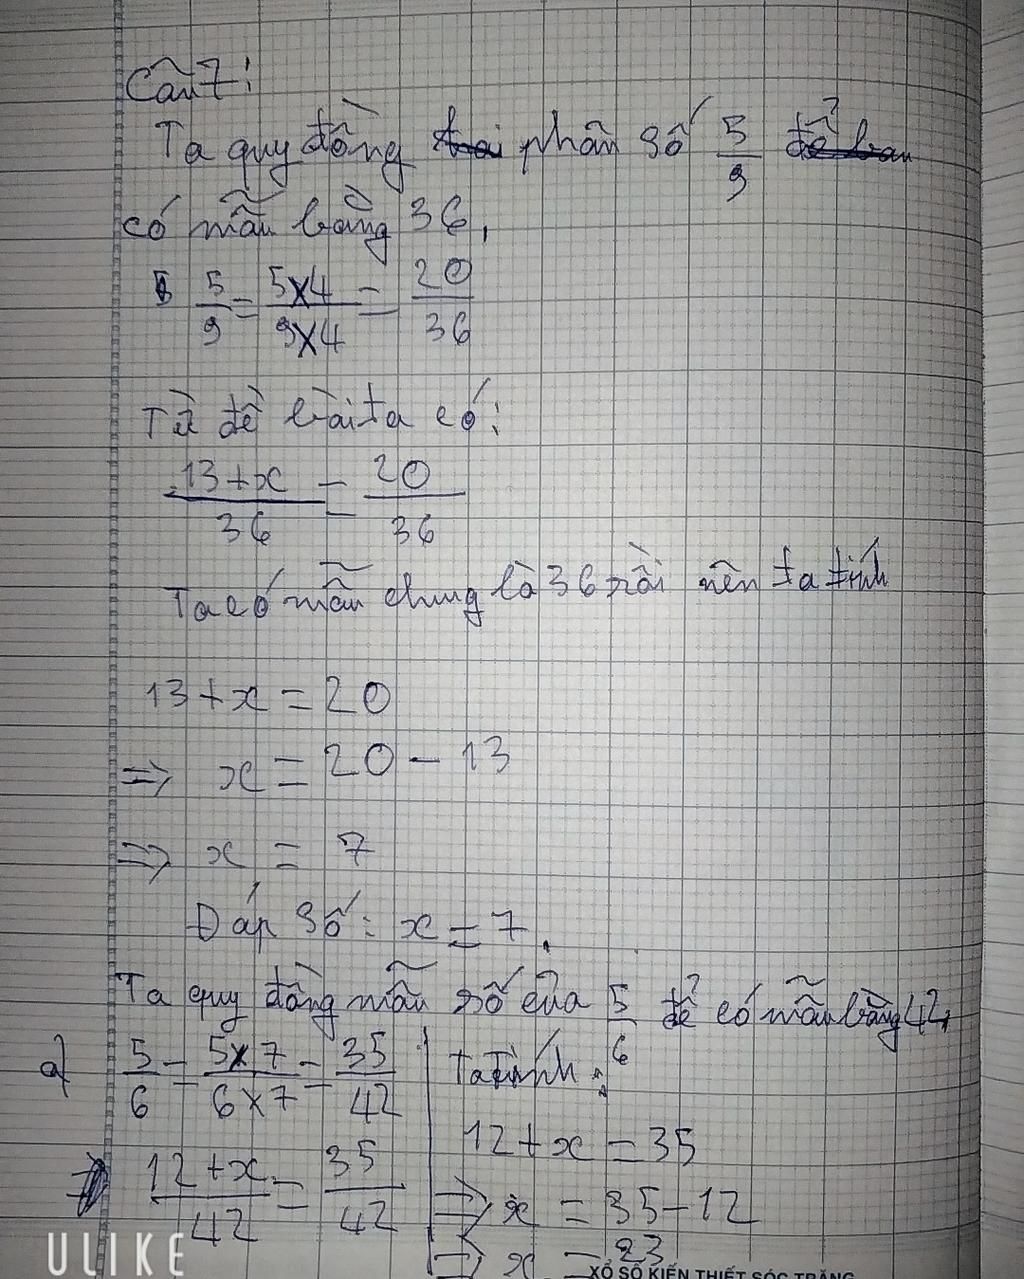 Câu 7:
Ta quy đồng phân số 5/9 để
có mẫu bằng 36,
5/9 = 5x4/9x4 = 20/36
Từ đề bài ta có:
13+x/36 = 20/36
Ta có mẫu chung là 36 rồi nên ta tính
13+x = 20
=> x = 20 - 13
=> x = 7
Đáp số: x = 7.
Ta quy đồng mẫu số của 5/6 để có mẫu bằng 42,
a) 5/6 = 5x7/6x7 = 35/42
12+x/42 = 35/42
Ta tính:
12+x = 35
=> x = 35-12
=> x = 23
ULIKE
XỔ SỐ KIẾN THIẾT SÓC TRĂNG